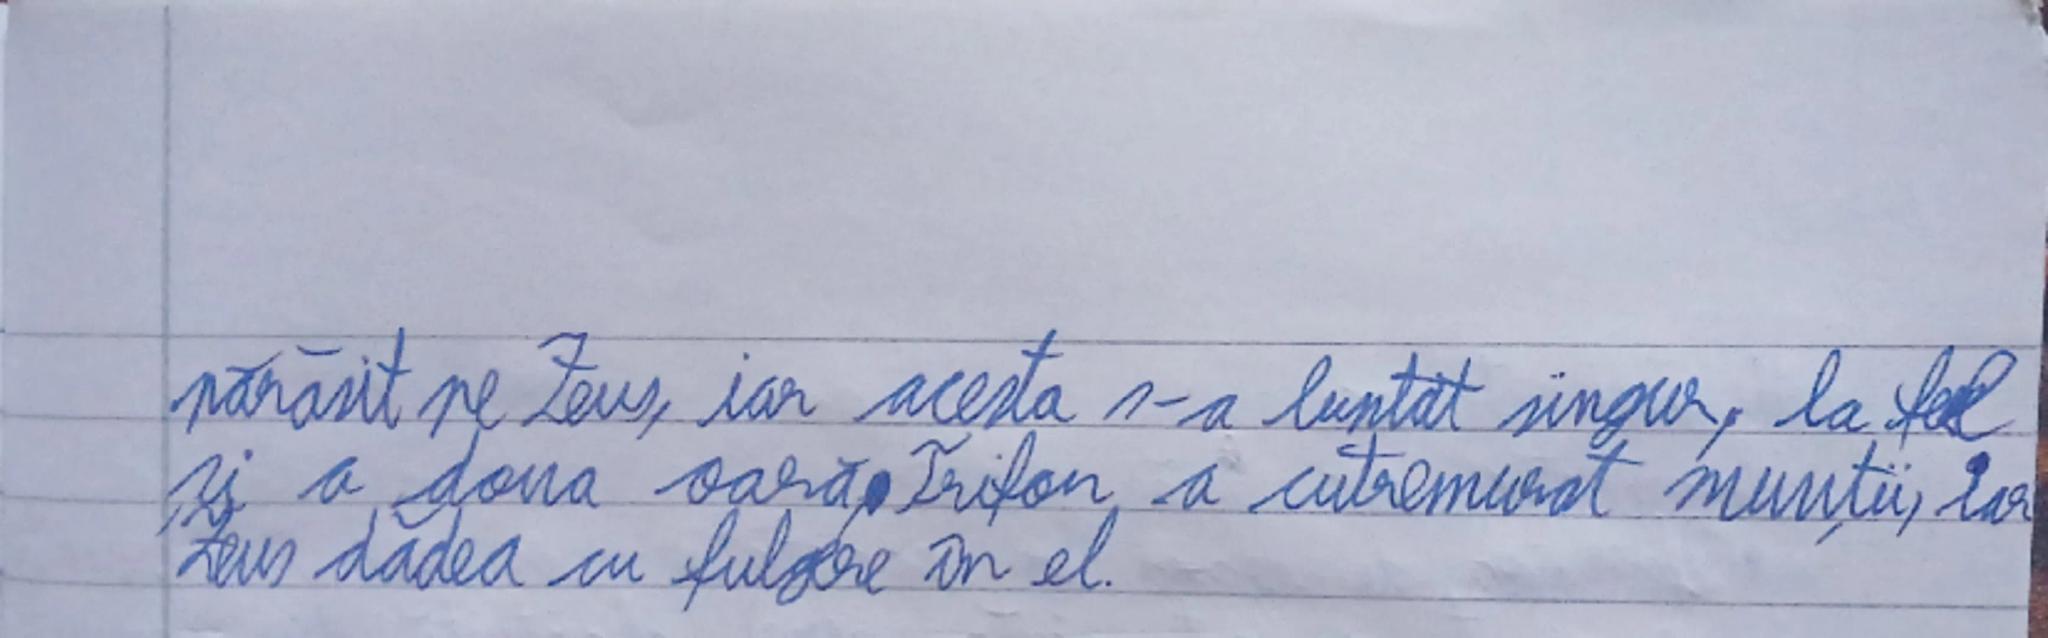 părăsit pe Zeus, iar acesta s-a luptat singur, la fel
și a doua oară. Trifon a cutremurat munții, iar
Zeus dădea cu fulgere în el.